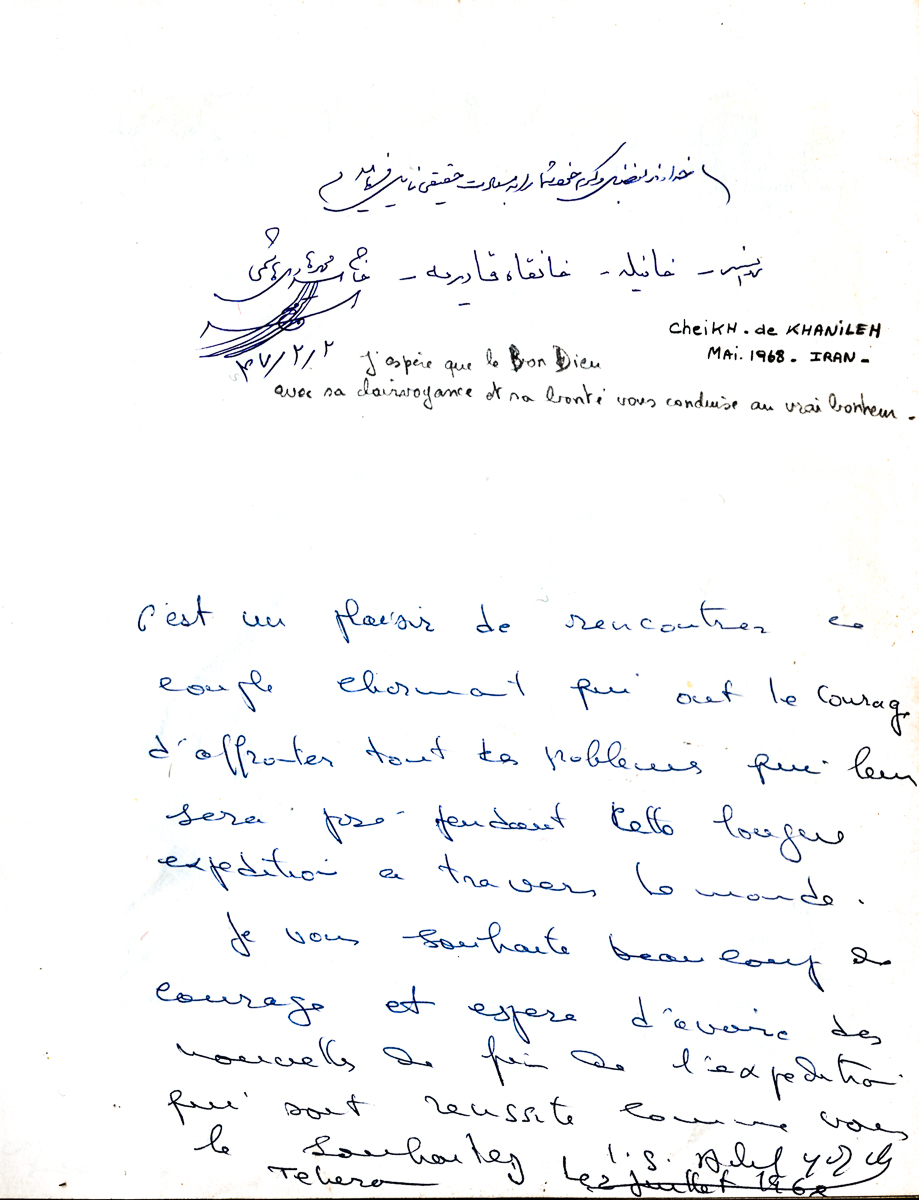 خداوند بفضل و کرم خود شما را به سعادت حقیقی نائل فرماید
خانیله - خانقاه قادریه -
حاج
۴۷/۲/۲
Cheikh - de KHANiLEH
MAi. 1968 - IRAN -
J'espère que le Bon Dieu
avec sa clairvoyance et sa bonté vous conduise au vrai bonheur.
C'est un plaisir de rencontrer ce
couple charmant qui ont le courag
d'affronter tout les problemes qui leur
sera posé pendant cette longue
expedition a travers le monde.
Je vous souhaite beaucoup de
courage et espere d'avoir des
nouvelles de fin de l'expedition
qui sont reussite comme vous
le souhaitez
Teheran Le 2 juillet 1968